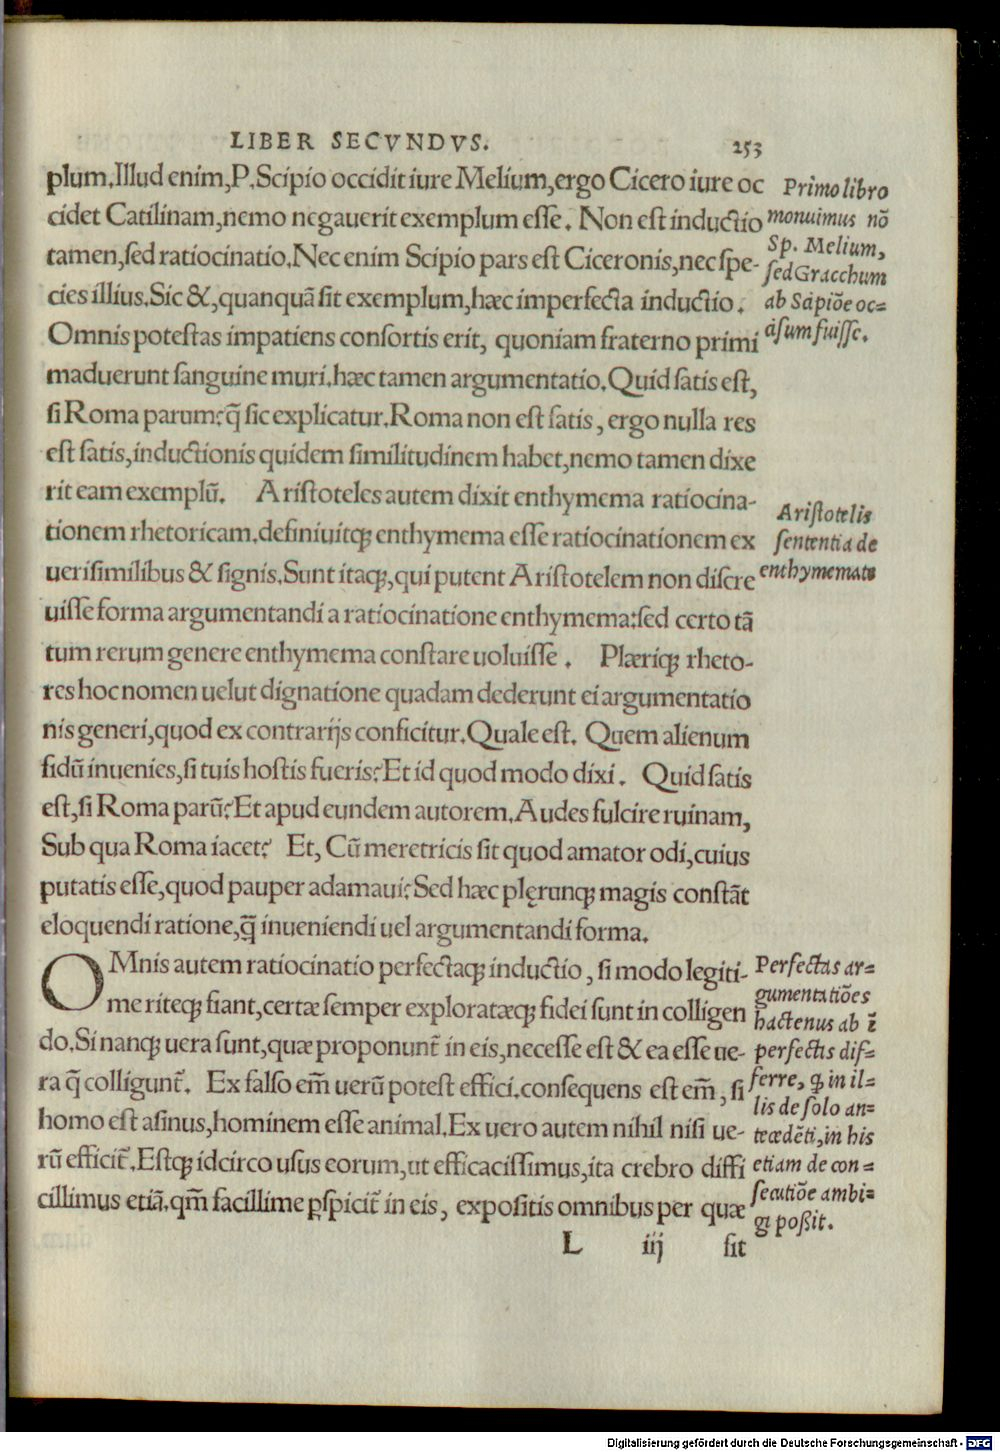 LIBER SECVNDVS. 253
plum.Illud enim,P.Scipio occidit iure Melium,ergo Cicero iure oc
cidet Catilinam,nemo negauerit exemplum esse. Non est inductio
tamen,sed ratiocinatio.Nec enim Scipio pars est Ciceronis,nec spe-
cies illius.Sic &,quanquã sit exemplum,hæc imperfecta inductio.
Omnis potestas impatiens consortis erit, quoniam fraterno primi
maduerunt sanguine muri.hæc tamen argumentatio.Quid satis est,
si Roma parum?q̃ sic explicatur.Roma non est satis, ergo nulla res
est satis,inductionis quidem similitudinem habet,nemo tamen dixe
rit eam exemplũ. Aristoteles autem dixit enthymema ratiocina-
tionem rhetoricam.definiuitqꝫ enthymema esse ratiocinationem ex
uerisimilibus & signis.Sunt itaqꝫ,qui putent Aristotelem non discre
uisse forma argumentandi a ratiocinatione enthymema:sed certo tã
tum rerum genere enthymema constare uoluisse. Plæriqꝫ rheto-
res hoc nomen uelut dignatione quadam dederunt ei argumentatio
nis generi,quod ex contrarijs conficitur.Quale est. Quem alienum
fidũ inuenies,si tuis hostis fueris?Et id quod modo dixi. Quid satis
est,si Roma parũ?Et apud eundem autorem.Audes fulcire ruinam,
Sub qua Roma iacet? Et, Cũ meretricis sit quod amator odi,cuius
putatis esse,quod pauper adamaui?Sed hæc plęrunqꝫ magis constãt
eloquendi ratione,q̃ꝫ inueniendi uel argumentandi forma.
OMnis autem ratiocinatio perfectaqꝫ inductio, si modo legiti-
me riteqꝫ fiant,certæ semper explorataeqꝫ fidei sunt in colligen
do.Si nanqꝫ uera sunt,quæ proponunt̃ in eis,necesse est & ea esse ue-
ra q̃ colligunt̃. Ex falso em̃ uerũ potest effici.consequens est em̃, si
homo est asinus,hominem esse animal.Ex uero autem nihil nisi ue-
rũ efficit̃.Estqꝫ idcirco usus eorum,ut efficacissimus,ita crebro diffi
cillimus etiã.qm̃ facillime ꝑspicit̃ in eis, expositis omnibus per quæ
L iij sit
Primo libro
monuimus nõ
Sp. Melium,
sed Gracchum
ab Scipiõe oc=
cisum fuisse.
Aristotelis
sententia de
enthymemate
Perfectas ar=
gumentatiões
hactenus ab ĩ
perfectis dif=
ferre, ꝙ in il=
lis de solo an=
tecedẽti,in his
etiam de con=
secutiõe ambi=
gi poßit.
Digitalisierung gefördert durch die Deutsche Forschungsgemeinschaft - DFG